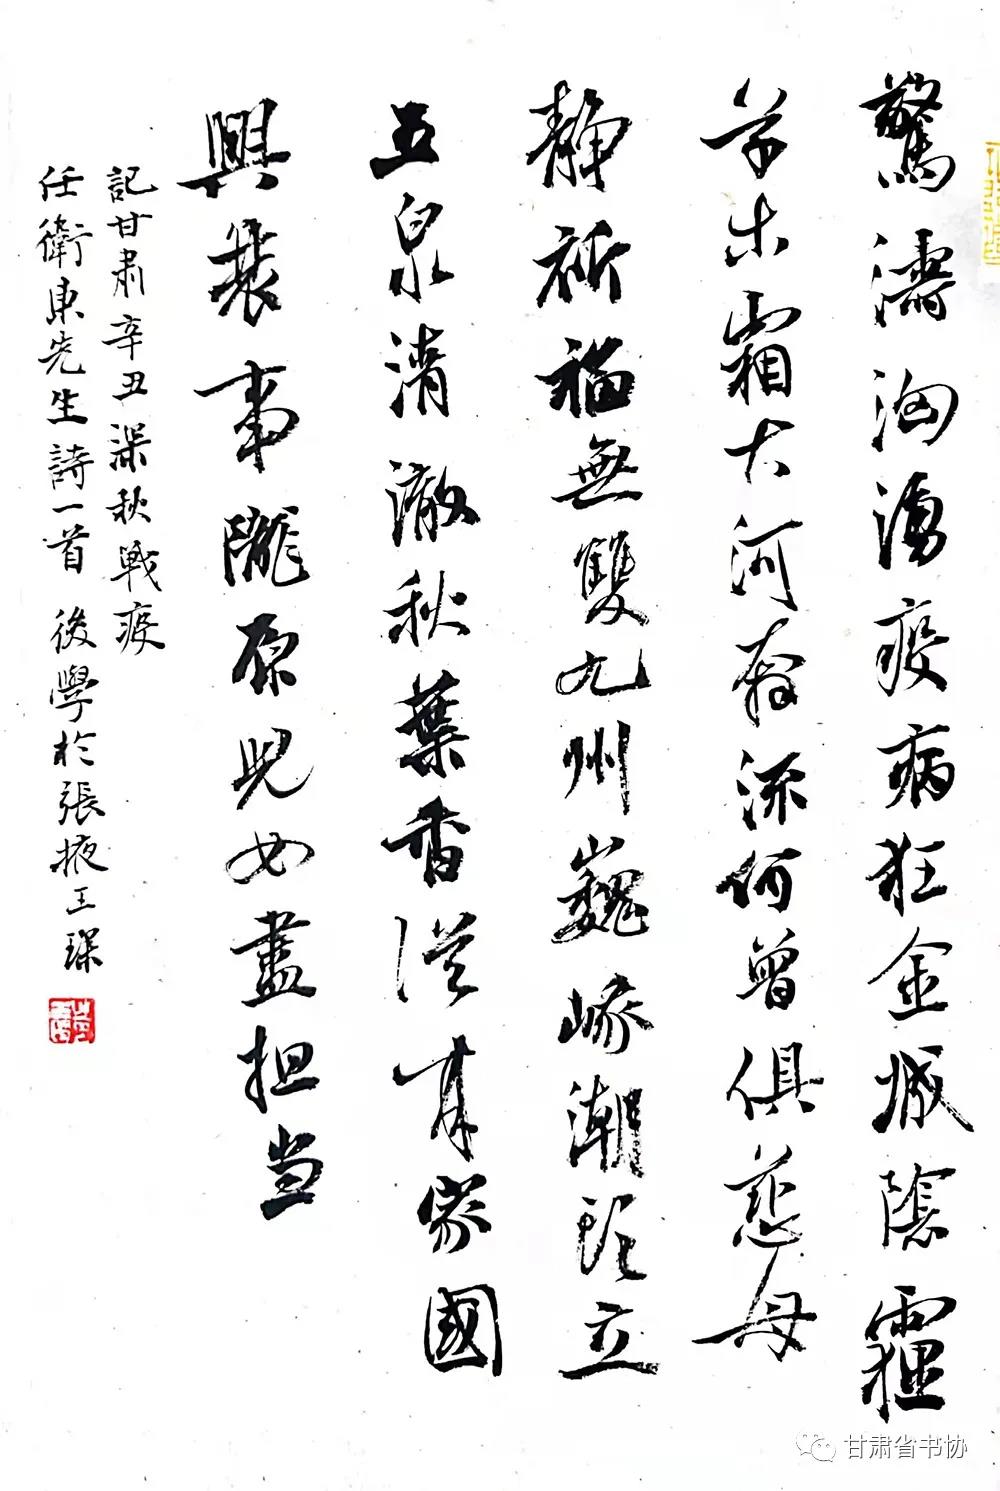 驚濤洶湧疫病狂金城隱霾
草木霜大河奔流何曾俱慈母
靜祈福無雙九州巍峨潮頭立
五泉清澈秋葉香從來家國
興衰事隴原兒女盡担当
記甘肅辛丑深秋戰疫
任衛東先生詩一首 後學於張掖王琛
甘肃省书协